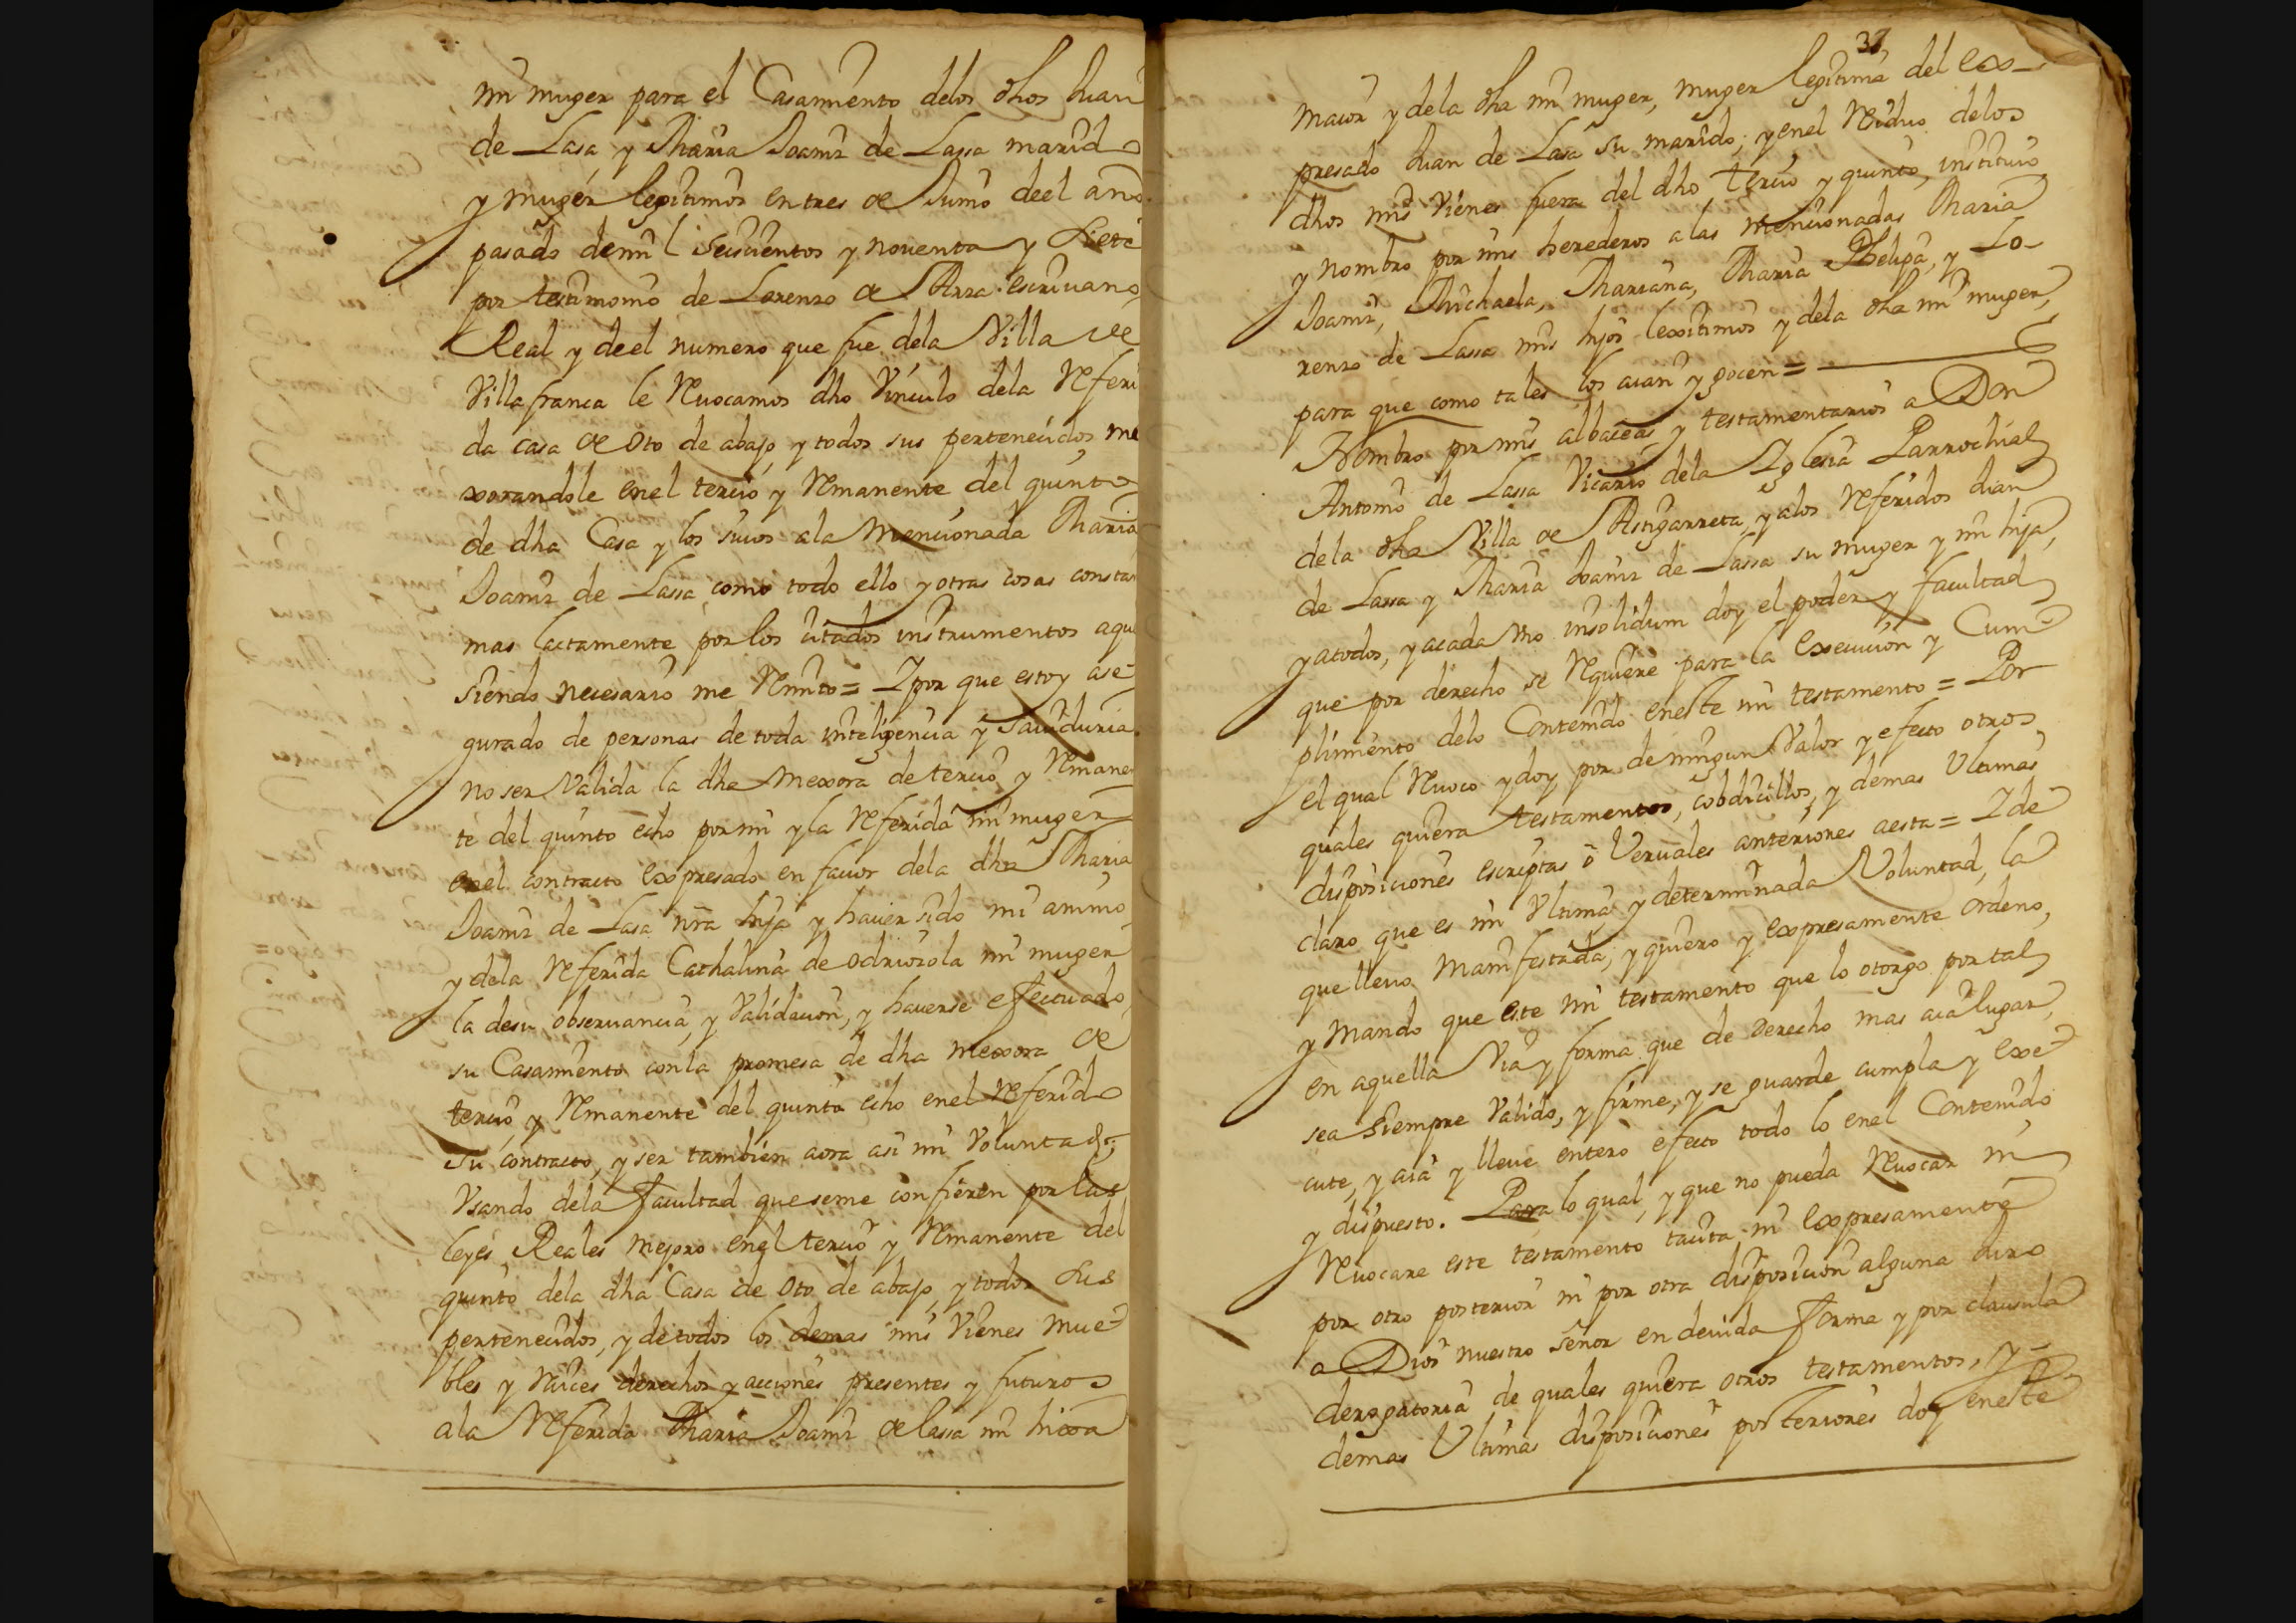 mi muger para el Casamiento delos dhos Juan
de Lasa y Maria Joaniz de Lassa marido
y muger legitimos en tres de Junio deel año
pasado de mil seiscientos y nouenta y siete
por testimonio de Lorenzo de Arza escriuano
Real y deel numero que fue dela Villa de
Villafranca le Reuocamos dho Vinculo dela Referi
da casa de Oto de abajo y todos sus pertenecidos, me
xorandole enel tercio y Remanente del quinto
de dha Casa y los suios ala mencionada Maria
Joaniz de Lassa como todo ello y otras cosas constan
mas lactamente por los citados instrumentos aque
siendo necesario me Remito = I por que estoy ase
gurado de personas de toda inteligencia y Sauiduria
no ser Valida la dha Mexora de tercio y Remanen
te del quinto echo por mi y la Referida mi muger
enel contracto expresado en fauor dela dha Maria
Joaniz de Lasa nra hija y hauer sido mi animo
y dela Referida Cathalina de Odriozola mi muger
la desu obseruancia, y Validacion, y hauerse efectuado
su Casamiento con la promesa de dha mexora de
tercio y Remanente del quinto echo enel Referido
su contracto, y ser tambien aora asi mi Voluntad,
Vsando dela facultad que seme confieren por las
leyes Reales mejoro enel tercio y Remanente del
quinto dela dha Casa de Oto de abajo, y todos sus
pertenecidos, y de todos los demas mis Vienes mue
bles y Raices derechos y acciones presentes y futuros
ala Referida Maria Joaniz de lassa mi hixa
37
maior y dela dha mi muger, muger legitima del ex
presado Juan de Lasa su marido; y enel Residuo delos
dhos mis Vienes fuera del dho tercio y quinto, instituio
y nombro por mis herederos a las mencionadas Maria
Joaniz, Michaela, Mariana, Maria Phelipa, y Lo-
renzo de Lassa mis hijos lexitimos y dela dha mi muger,
para que como tales los aian y gocen =
Nombro por mis albaceas y testamentarios a Don
Antonio de Lassa Vicario dela Iglesia Parrochial
dela dha Villa de Astigarreta, y alos Referidos Juan
de Lassa y Maria Joaniz de Lassa su muger y mi hija,
y atodos, y acada vno insolidum doy el poder y facultad
que por derecho se Requiere para la execucion y Cum
plimiento delo Contenido eneste mi testamento = Por
el qual Reuoco y doy por de ningun Valor y efecto otros
quales quiera testamentos, cobdicillos, y demas Vltimas
disposiciones escriptas o Veruales anteriores aesta = I de
claro que es mi Vltima y determinada Voluntad, la
que lleuo Manifestada, y quiero y expresamente ordeno,
y mando que este mi testamento que lo otorgo por tal
en aquella Via y forma que de derecho mas aia lugar,
sea siempre Valido, y firme, y se guarde cumpla y exe
cute, y aia y lleue entero efecto todo lo enel Contenido
y dispuesto. Para lo qual, y que no pueda Reuocar ni
Reuocare este testamento tacita ni expresamente
por otro posterior ni por otra disposicion alguna Juro
a Dios nuestro señor en deuida forma y por clausula
derogatoria de quales quiera otros testamentos, y
demas Vltimas disposiciones posteriores doy eneste